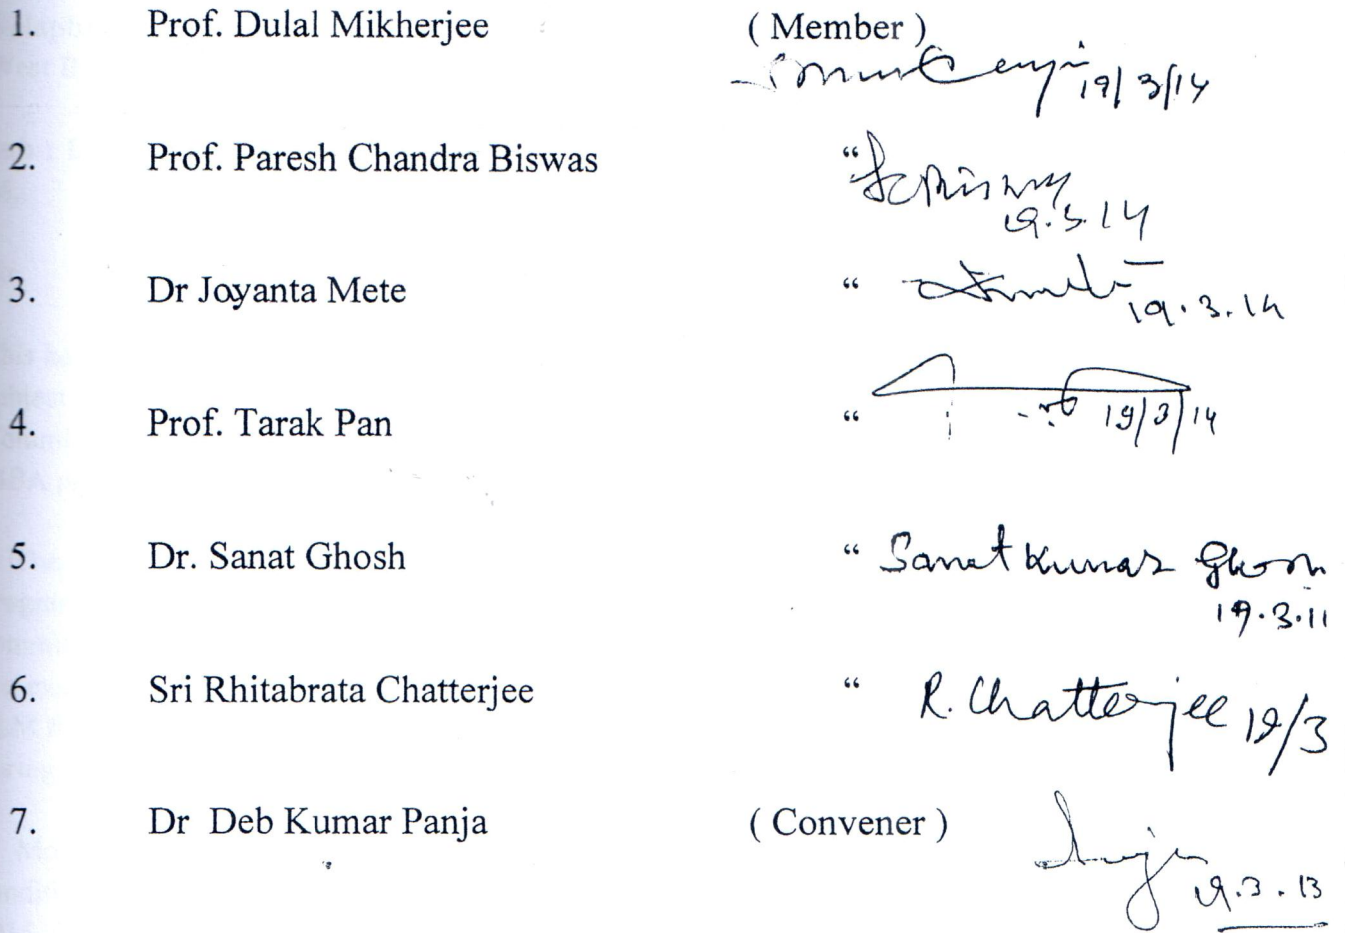 1. Prof. Dulal Mikherjee ( Member )
19/3/14
2. Prof. Paresh Chandra Biswas “
19.3.14
3. Dr Joyanta Mete “
19.3.14
4. Prof. Tarak Pan “ 19/3/14
5. Dr. Sanat Ghosh “ Sanat Kumar Ghosh
19.3.11
6. Sri Rhitabrata Chatterjee “ R. Chatterjee 19/3
7. Dr Deb Kumar Panja ( Convener )
19.3.13